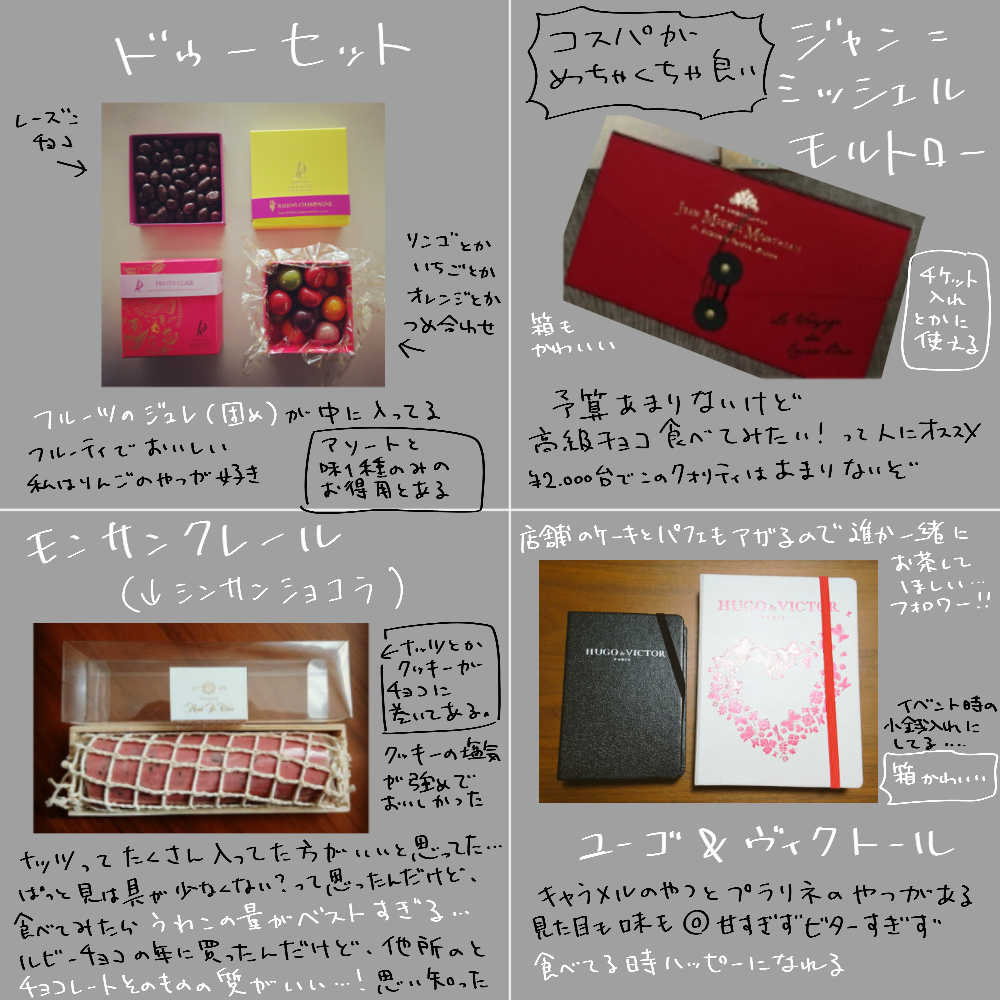 ドゥーセット
レーズン
チョコ
RAISINS CHAMPAGNE
FRUITS CLAIR
リンゴとか
いちごとか
オレンジとか
つめ合わせ
フルーツのジュレ(固め)が中に入ってる
フルーティでおいしい
私はりんごのやつが好き
アソートと
味1種のみの
お得用とある
コスパが
めっちゃくちゃ良い
ジャン=
ミッシェル
モルトロー
JEAN MICHEL MORTREAU
箱も
かわいい
チケット
入れ
とかに
使える
予算あまりないけど
高級チョコ食べてみたい!って人にオススメ
¥2.000台でこのクオリティはあまりないぞ
モンサンクレール
(↓シンサンショコラ)
←ナッツとか
クッキーが
チョコに
巻いてある。
クッキーの塩気
が強めで
おいしかった
ナッツってたくさん入ってた方がいいと思ってた…
ぱっと見は具が少なくない?って思ったんだけど、
食べてみたらうわこの量がベストすぎる…
ルビーチョコの年に買ったんだけど、他所のと
チョコレートそのものの質がいい…!思い知った
店舗のケーキとパフェもアガるので誰か一緒に
お茶して
ほしい…
フォロワー!!
HUGO & VICTOR
PARIS
HUGO & VICTOR
PARIS
イベント時の
小銭入れに
してる….
箱かわいい
ユーゴ&ヴィクトール
キャラメルのやつとプラリネのやつがある
見た目も味も◎甘すぎずビターすぎず
食べてる時ハッピーになれる